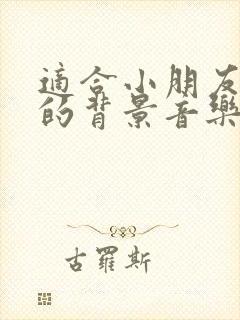 適合小朋友
的背景音樂
古羅斯